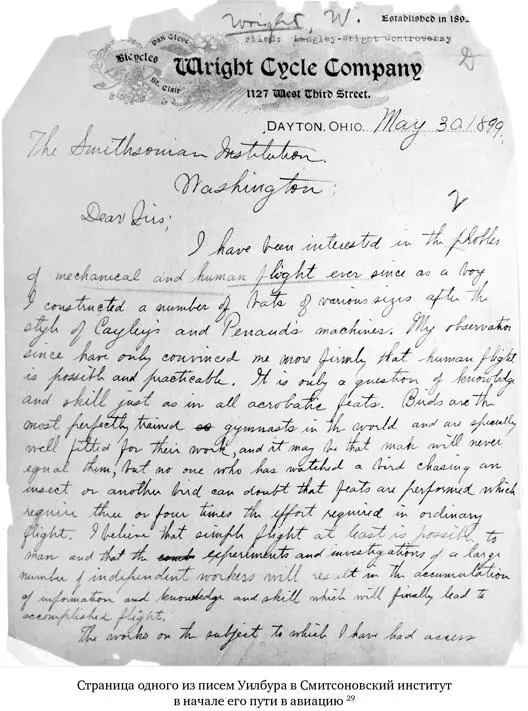 Wright, W.
Established in 189
Filed: Langley-Wright Controversy
Van Cleve
Bicycles
St. Clair
Wright Cycle Company
1127 West Third Street.
DAYTON, OHIO, May 30, 1899.
The Smithsonian Institution.
Washington;
Dear Sirs;
I have been interested in the problem
of mechanical and human flight ever since as a boy
I constructed a number of bats of various sizes after the
style of Cayley's and Penaud's machines. My observations
since have only convinced me more firmly that human flight
is possible and practicable. It is only a question of knowledge
and skill just as in all acrobatic feats. Birds are the
most perfectly trained gymnasts in the world and are specially
well fitted for their work, and it may be that man will never
equal them, but no one who has watched a bird chasing an
insect or another bird can doubt that feats are performed which
require three or four times the effort required in ordinary
flight. I believe that simple flight at least is possible to
man and that the experiments and investigations of a large
number of independent workers will result in the accumulation
of information and knowledge and skill which will finally lead to
accomplished flight.
The works on the subject to which I have had access
Страница одного из писем Уилбура в Смитсоновский институт
в начале его пути в авиацию 29